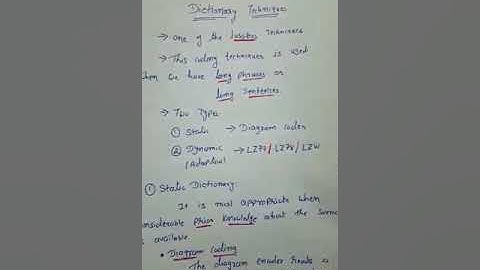 Dictionary Techniques
→ one of the lossless Techniques
→ This coding techniques is used
when we have long phrases or
long sentences.
→ Two Types
① Static → Diagram coder
② Dynamic → LZ77/LZ78/LZW
(Adaptive)
① Static Dictionary:
It is most appropriate when
considerable prior knowledge about the
is available.
• Diagram coding
The diagram encoder reads a